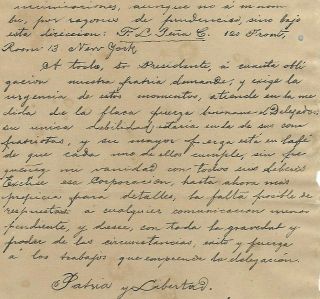 comunicaciones, aunque no á mi nom-
bre, por razones de prudencia, sino bajo
esta direccion: F. L. Peña C. 120 Front,
Room 13 New York
A todo, Sr Presidente, á cuanta obli
gacion nuestra patria demande, y exige la
urgencia de estos momentos, atiende en la me-
dida de la flaca fuerza humana el Delegado:
su unica debilidad estaria en la de sus com
patriotas, y su mayor fuerza está en la fé
de que cada uno de ellos cumple, sin
ni vanidad con todos sus deberes
Escuse esa Corporacion, hasta ahora mas
para detalles, la falta posible de
respuesta á cualquier comunicacion menos
pendiente, y désee, con toda la gravedad y
poder de las circunstancias, exito y fuerza
á los trabajos que emprende la delegación.
Patria y Libertad.